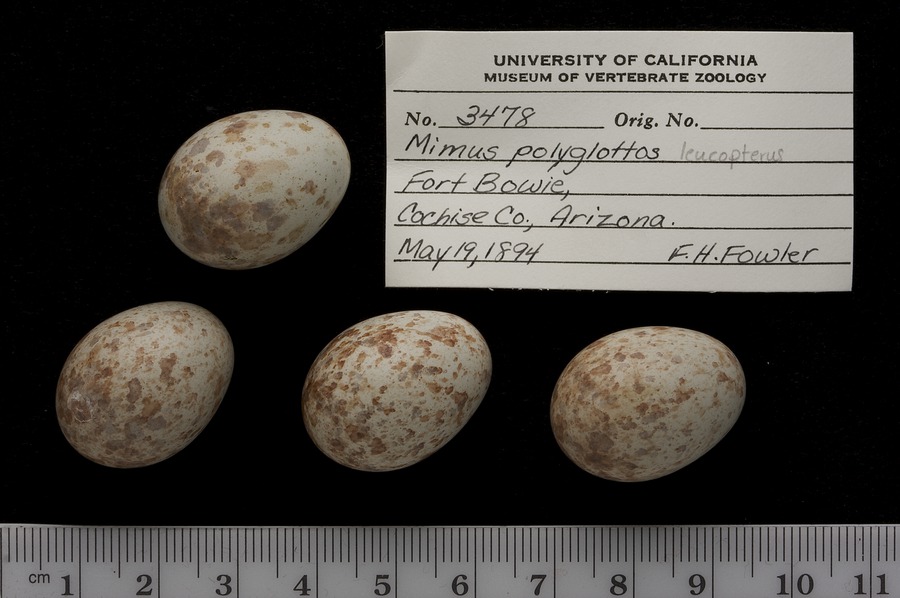 UNIVERSITY OF CALIFORNIA
MUSEUM OF VERTEBRATE ZOOLOGY
No. 3478 Orig. No.
Mimus polyglottos leucopterus
Fort Bowie,
Cochise Co., Arizona.
May 19, 1894 F.H. Fowler
cm 1 2 3 4 5 6 7 8 9 10 11